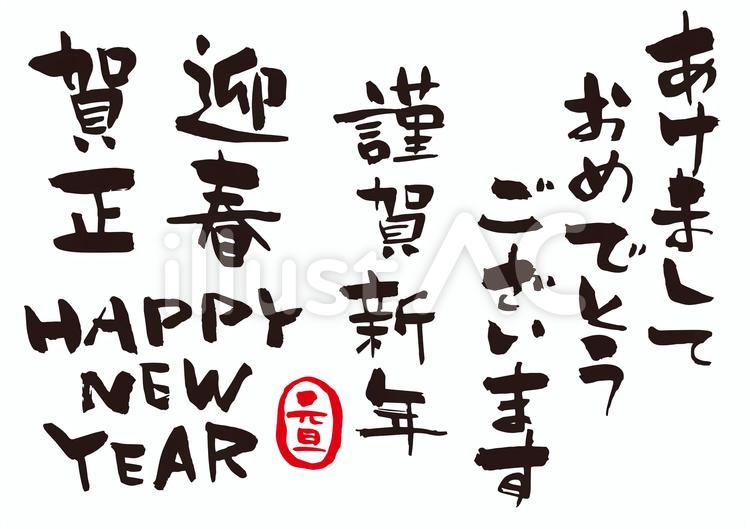 あけまして
おめでとう
ございます
謹賀新年
迎春
賀正
HAPPY
NEW
YEAR
元旦
illustAC